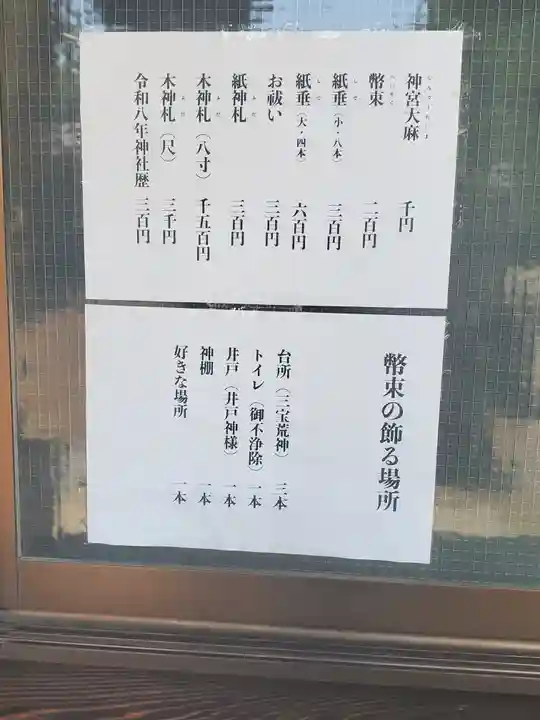 神宮大麻 千円
幣束 二百円
紙垂（小・八本） 三百円
紙垂（大・四本） 六百円
お祓い 三百円
紙神札 三百円
木神札（八寸） 千五百円
木神札（尺） 三千円
令和八年神社歴 三百円
幣束の飾る場所
台所（三宝荒神） 三本
トイレ（御不浄除） 一本
井戸（井戸神様） 一本
神棚 一本
好きな場所 一本